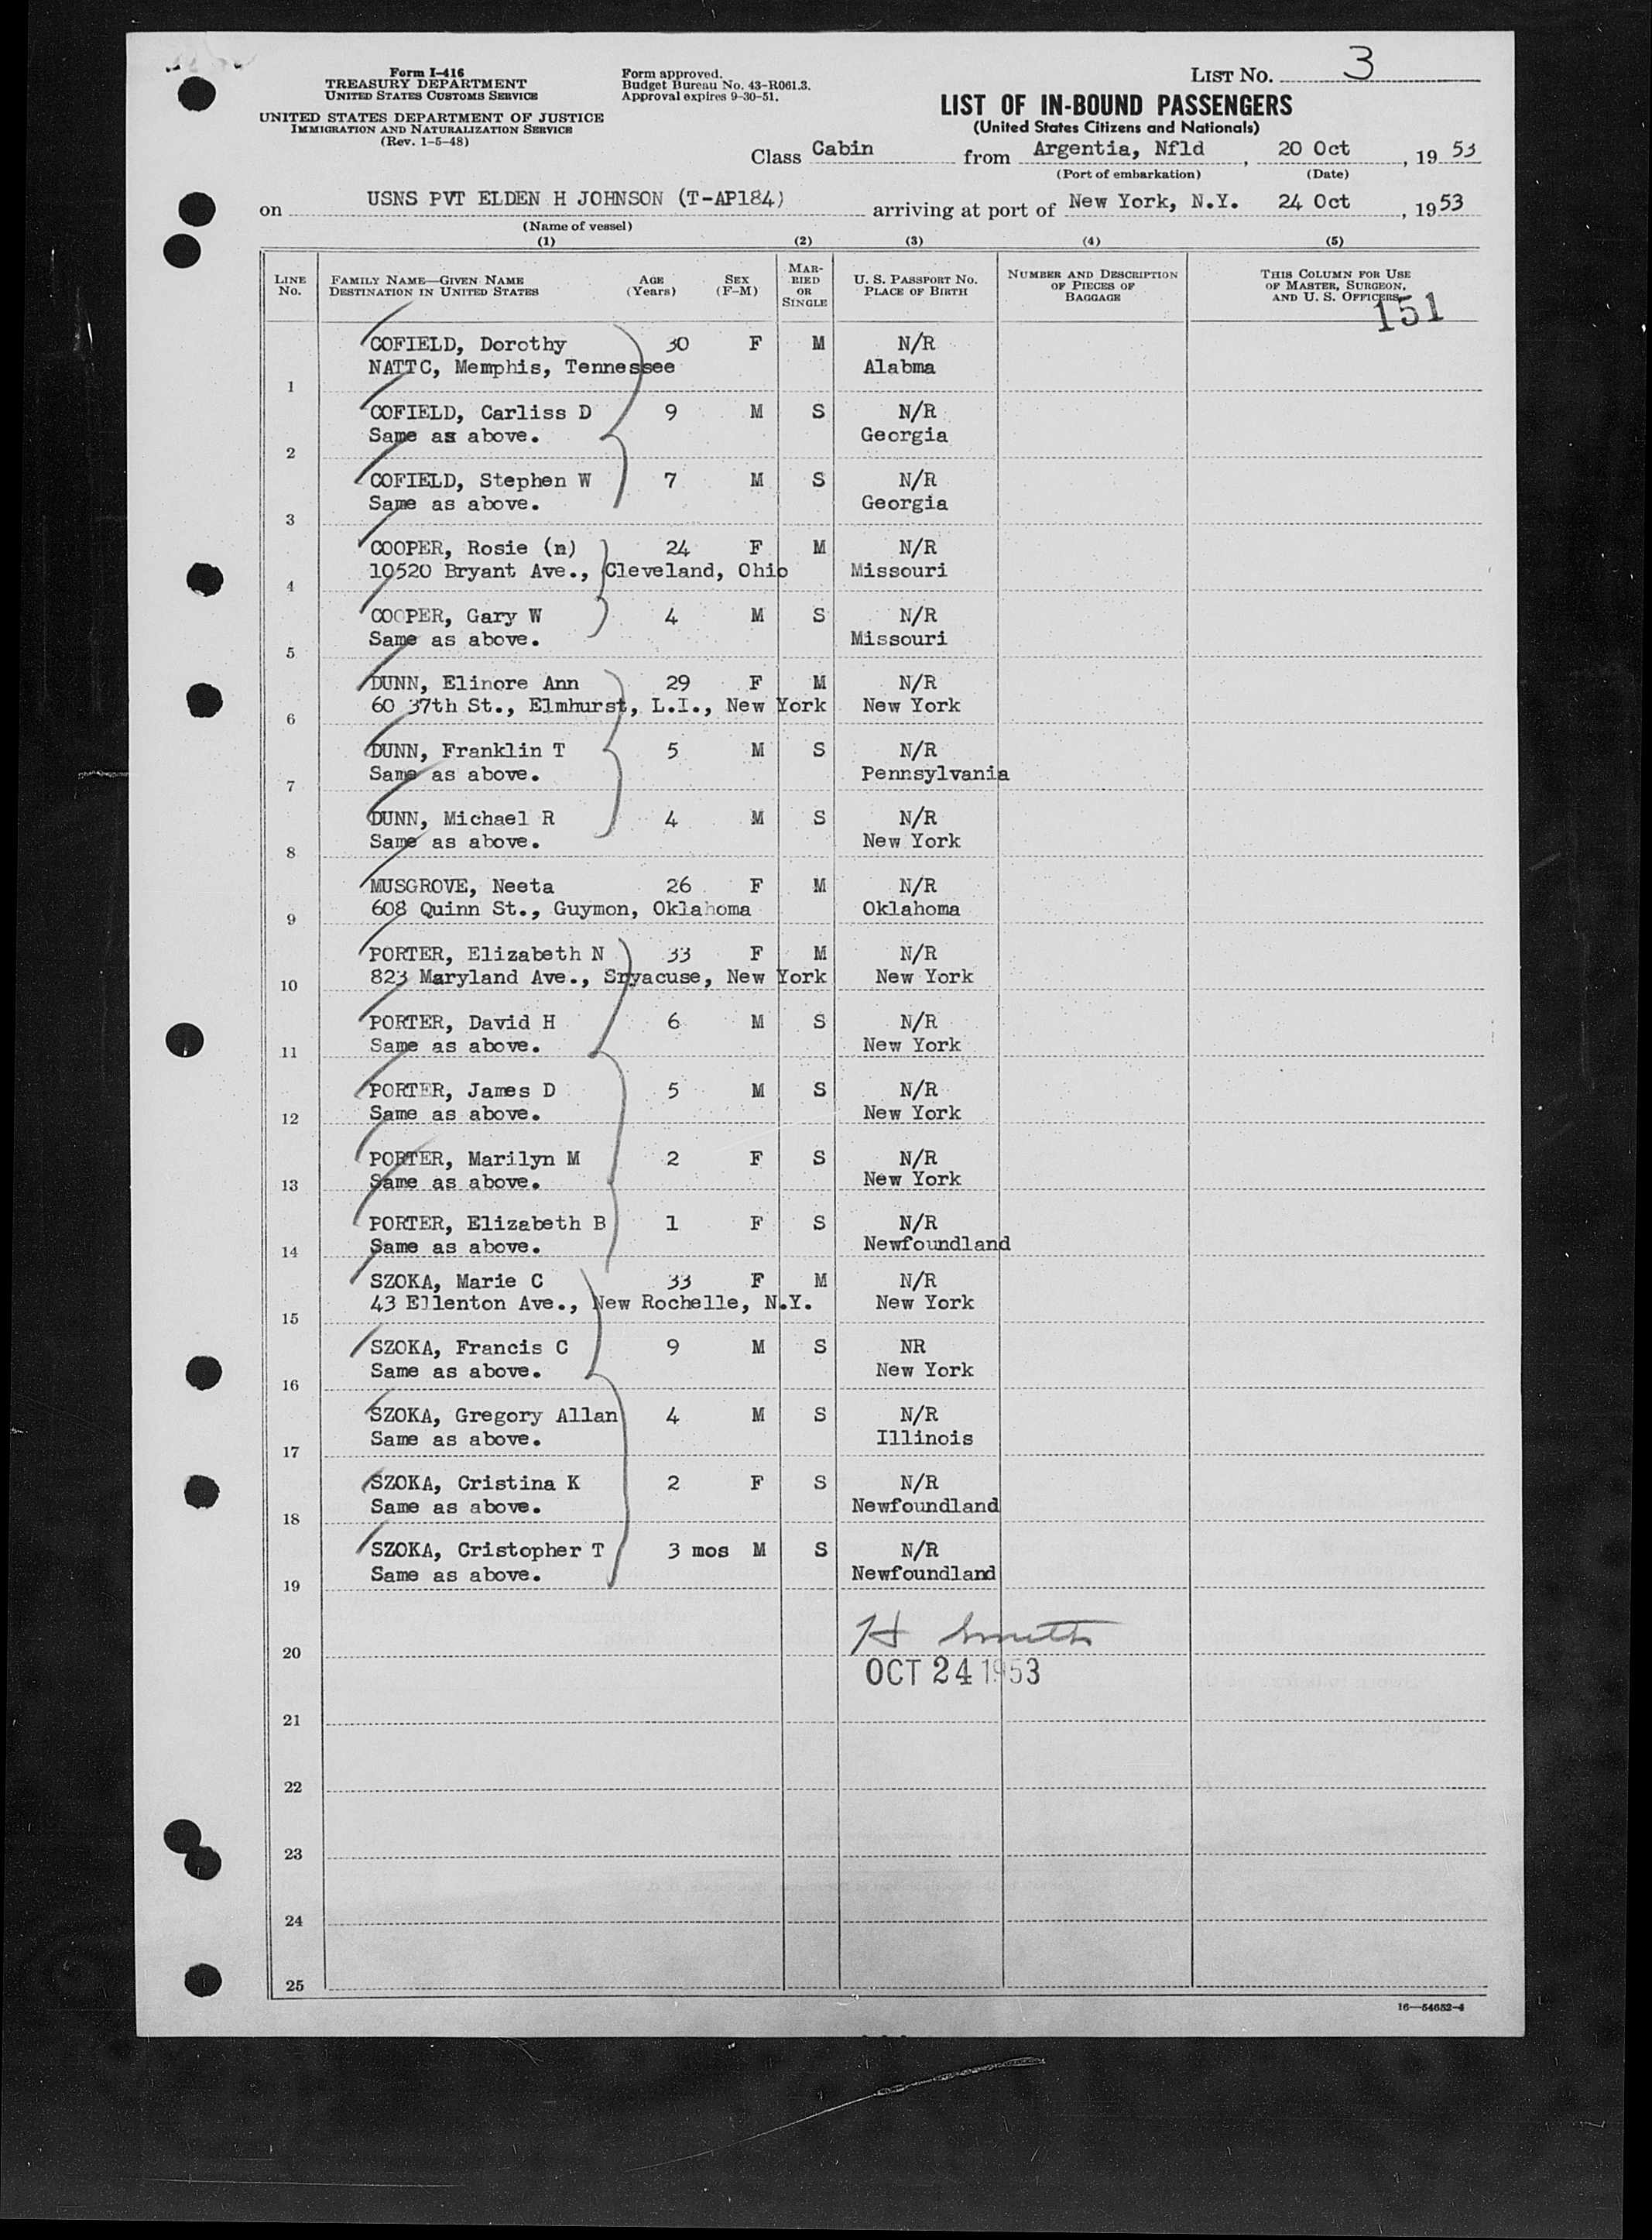 Form I-416
TREASURY DEPARTMENT
UNITED STATES CUSTOMS SERVICE
UNITED STATES DEPARTMENT OF JUSTICE
IMMIGRATION AND NATURALIZATION SERVICE
(Rev. 1-5-48)
Form approved.
Budget Bureau No. 43-R061.3.
Approval expires 9-30-51.
LIST NO. 3
LIST OF IN-BOUND PASSENGERS
(United States Citizens and Nationals)
Class Cabin from Argentia, Nfld, 20 Oct, 19 53
(Port of embarkation) (Date)
on USNS PVT ELDEN H JOHNSON (T-AP184) arriving at port of New York, N.Y. 24 Oct, 19 53
(Name of vessel)
(1) (2) (3) (4) (5)
LINE No. FAMILY NAME—GIVEN NAME DESTINATION IN UNITED STATES AGE (Years) SEX (F-M) MARRIED OR SINGLE U. S. PASSPORT NO. PLACE OF BIRTH NUMBER AND DESCRIPTION OF PIECES OF BAGGAGE THIS COLUMN FOR USE OF MASTER, SURGEON, AND U. S. OFFICERS
151
COFIELD, Dorothy 30 F M N/R
1 NATTC, Memphis, Tennessee Alabma
COFIELD, Carliss D 9 M S N/R
2 Same as above. Georgia
COFIELD, Stephen W 7 M S N/R
3 Same as above. Georgia
COOPER, Rosie (n) 24 F M N/R
4 10520 Bryant Ave., Cleveland, Ohio Missouri
COOPER, Gary W 4 M S N/R
5 Same as above. Missouri
DUNN, Elinore Ann 29 F M N/R
6 60 37th St., Elmhurst, L.I., New York New York
DUNN, Franklin T 5 M S N/R
7 Same as above. Pennsylvania
DUNN, Michael R 4 M S N/R
8 Same as above. New York
MUSGROVE, Neeta 26 F M N/R
9 608 Quinn St., Guymon, Oklahoma Oklahoma
PORTER, Elizabeth N 33 F M N/R
10 823 Maryland Ave., Sryacuse, New York New York
PORTER, David H 6 M S N/R
11 Same as above. New York
PORTER, James D 5 M S N/R
12 Same as above. New York
PORTER, Marilyn M 2 F S N/R
13 Same as above. New York
PORTER, Elizabeth B 1 F S N/R
14 Same as above. Newfoundland
SZOKA, Marie C 33 F M N/R
15 43 Ellenton Ave., New Rochelle, N.Y. New York
SZOKA, Francis C 9 M S NR
16 Same as above. New York
SZOKA, Gregory Allan 4 M S N/R
17 Same as above. Illinois
SZOKA, Cristina K 2 F S N/R
18 Same as above. Newfoundland
SZOKA, Cristopher T 3 mos M S N/R
19 Same as above. Newfoundland
H Smith
20
OCT 24 1953
21
22
23
24
25
16—54652-4